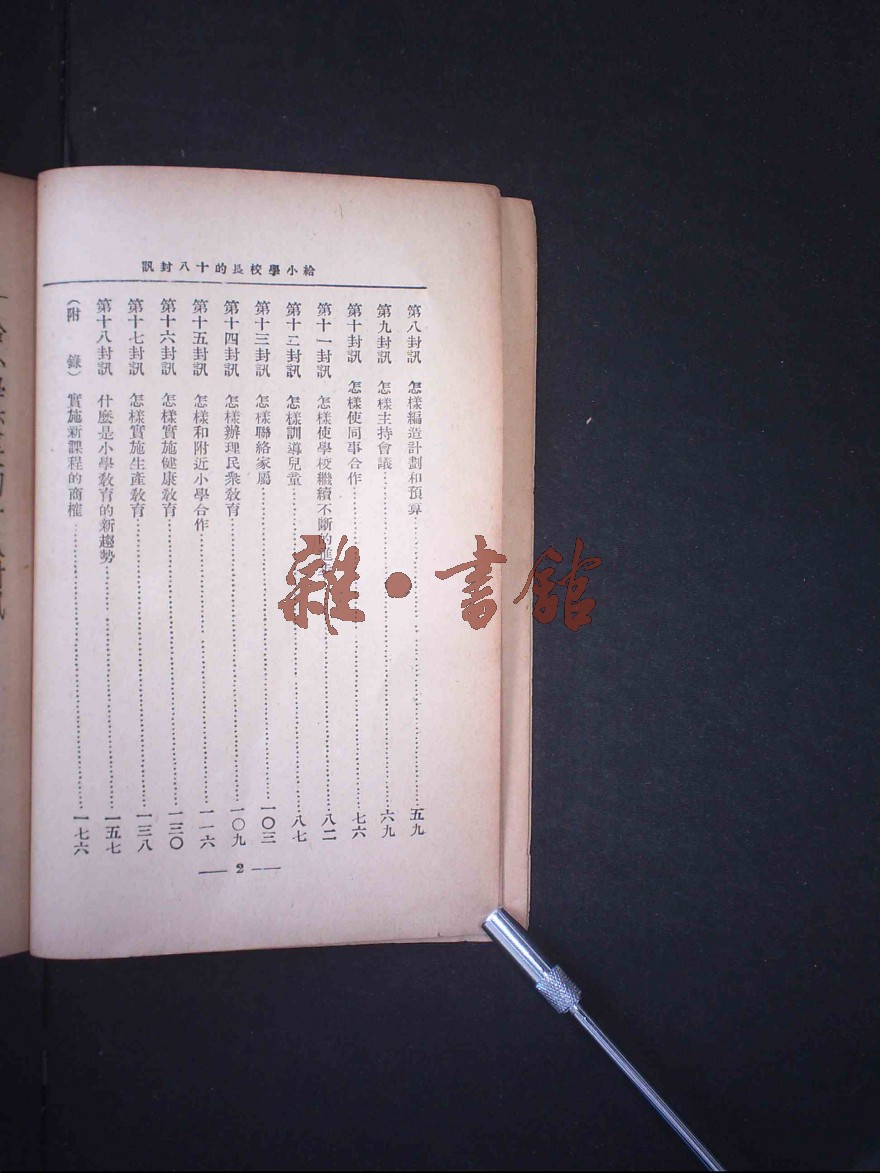 給小學校長的十八封訊
第八封訊 怎樣編造計劃和預算……五九
第九封訊 怎樣主持會議……六九
第十封訊 怎樣使同事合作……七六
第十一封訊 怎樣使學校繼續不斷的進……八二
第十二封訊 怎樣訓導兒童……八七
第十三封訊 怎樣聯絡家屬……一〇三
第十四封訊 怎樣辦理民衆敎育……一〇九
第十五封訊 怎樣和附近小學合作……一一六
第十六封訊 怎樣實施健康敎育……一三〇
第十七封訊 怎樣實施生產敎育……一三八
第十八封訊 什麽是小學敎育的新趨勢……一五七
（附 錄） 實施新課程的商榷……一七六
— 2 —
雜·書館